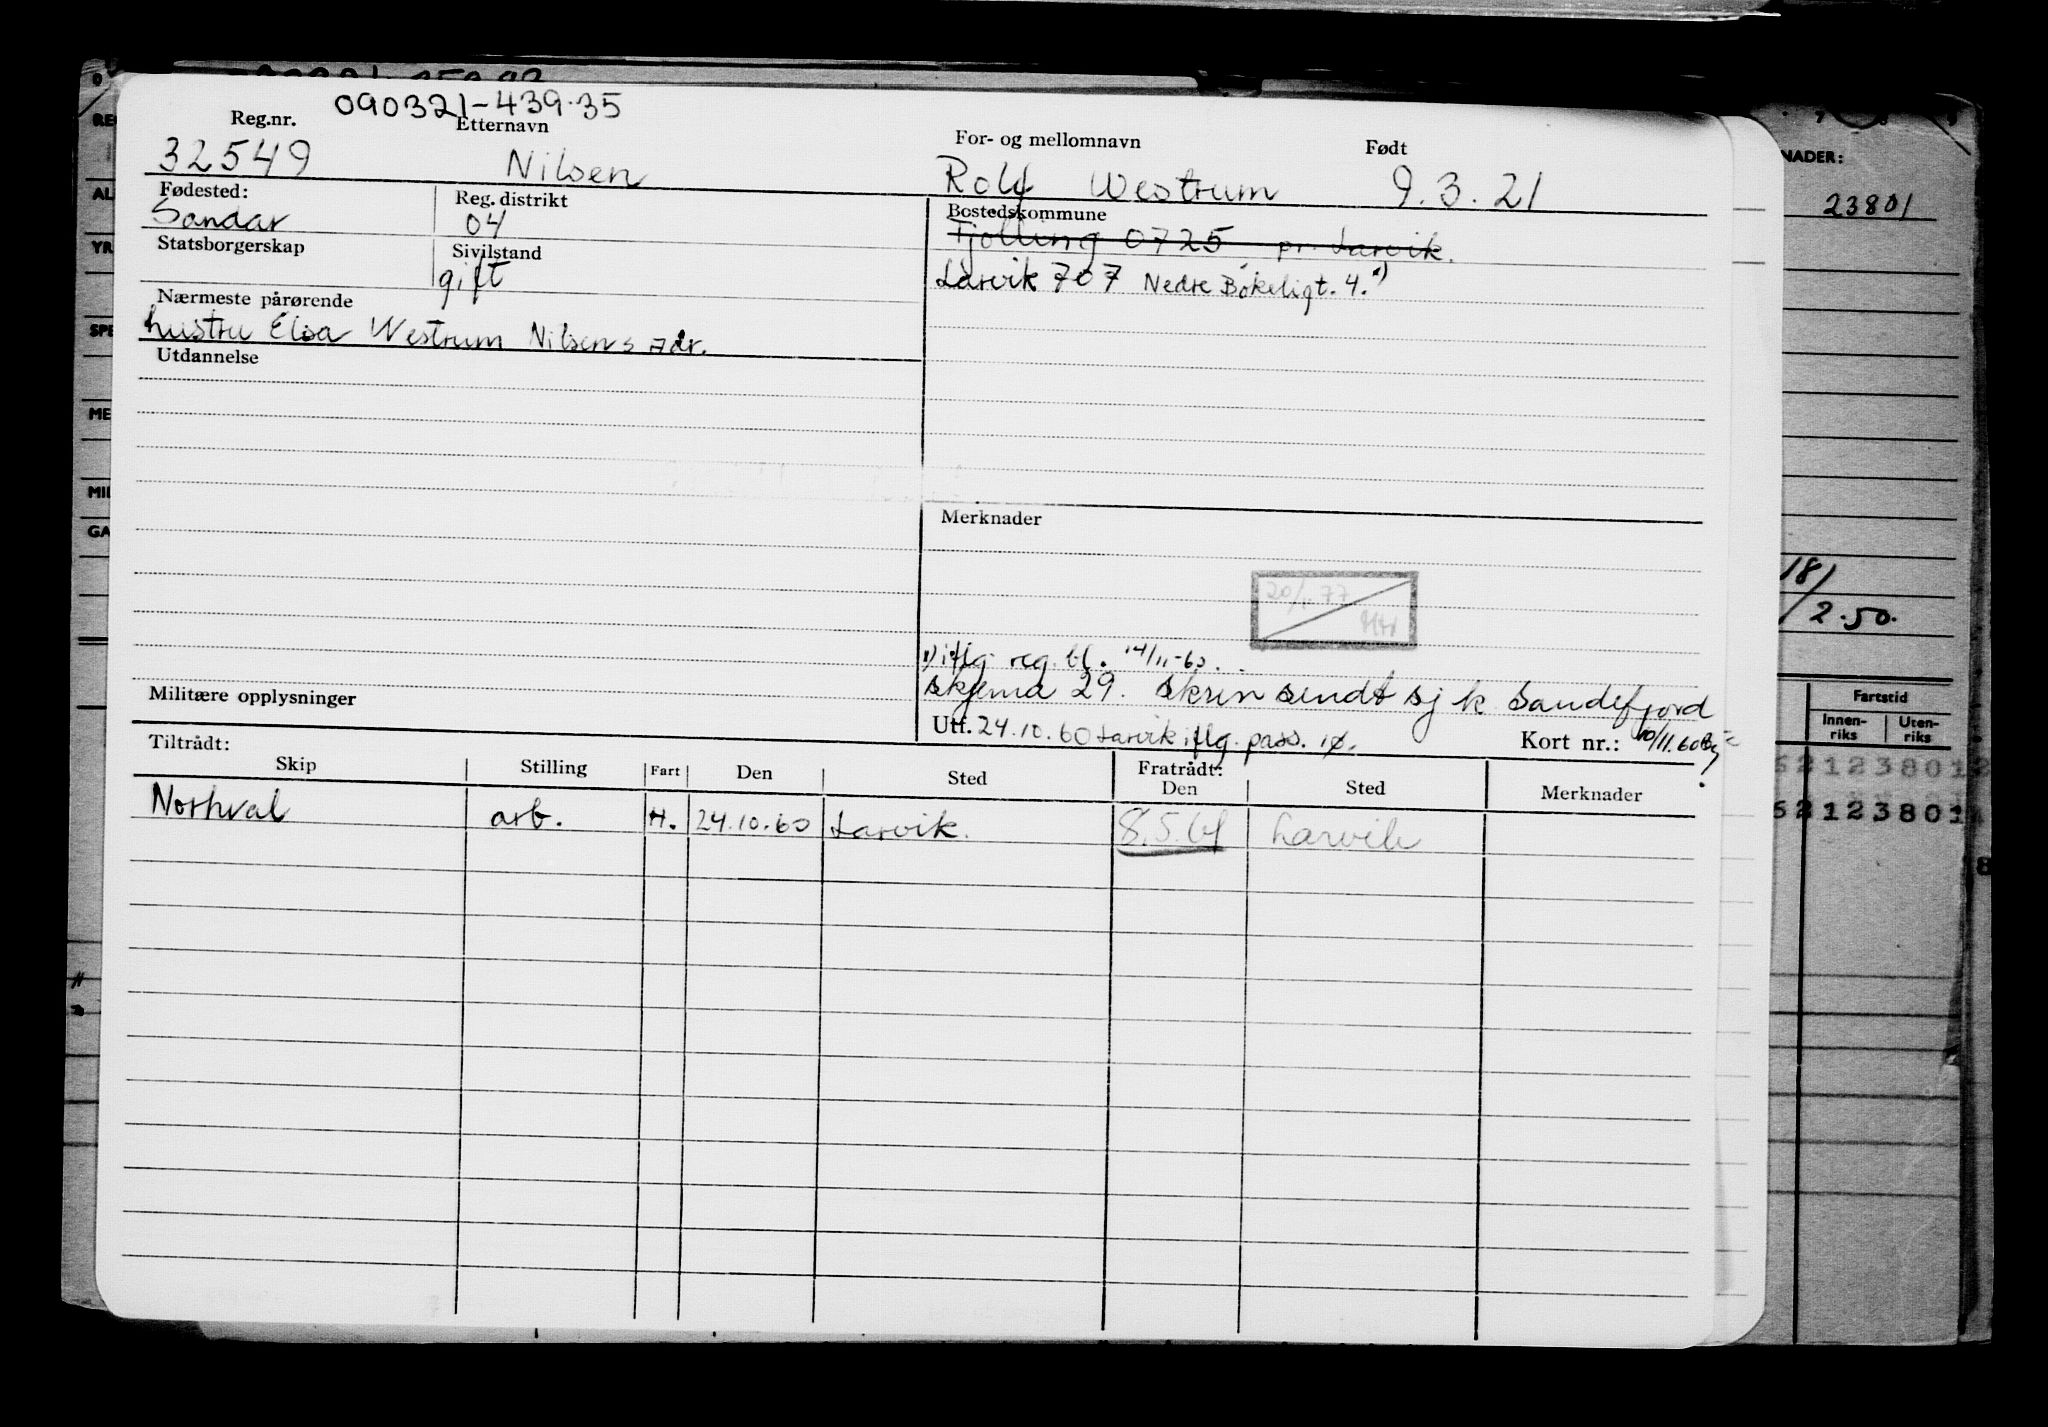 090321-439.35
Reg.nr. Etternavn For- og mellomnavn Født
32549 Nilsen Rolf Westrum 9.3.21
Fødested: Reg. distrikt Bostedskommune
Sandar 04 Tjølling 0725 pr. Larvik.
Statsborgerskap Sivilstand
gift Larvik 707 Nedre Bøkeligt. 4. 1)
Nærmeste pårørende
hustru Elsa Westrum Nilsen s adr.
Utdannelse
Merknader
20/1.77
1) iflg. reg. bl. 14/11-60.
skjema 29. skrin sendt sj k Sandefjord
Militære opplysninger
Utf. 24.10.60 Larvik iflg. pass. Kort nr.: 10/11.60
Tiltrådt: Fratrådt:
Skip Stilling Fart Den Sted Den Sted Merknader
Northval arb. H. 24.10.60 Larvik. 8.5.61 Larvik
NADER:
23801
18/
2.50.
Fartstid
Innen-riks Uten-riks
52123801
52123801